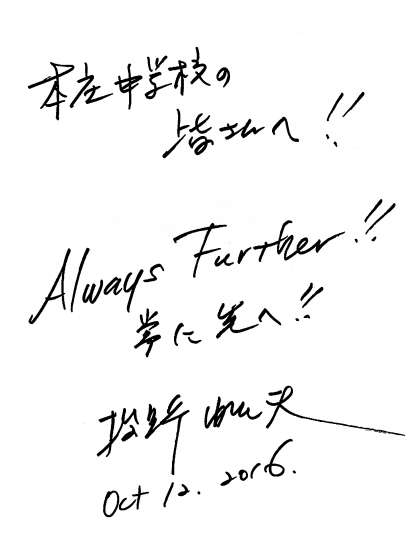 本庄中学校の
皆さんへ!!
Always Further!!
常に先へ!!
Oct 12. 2016.